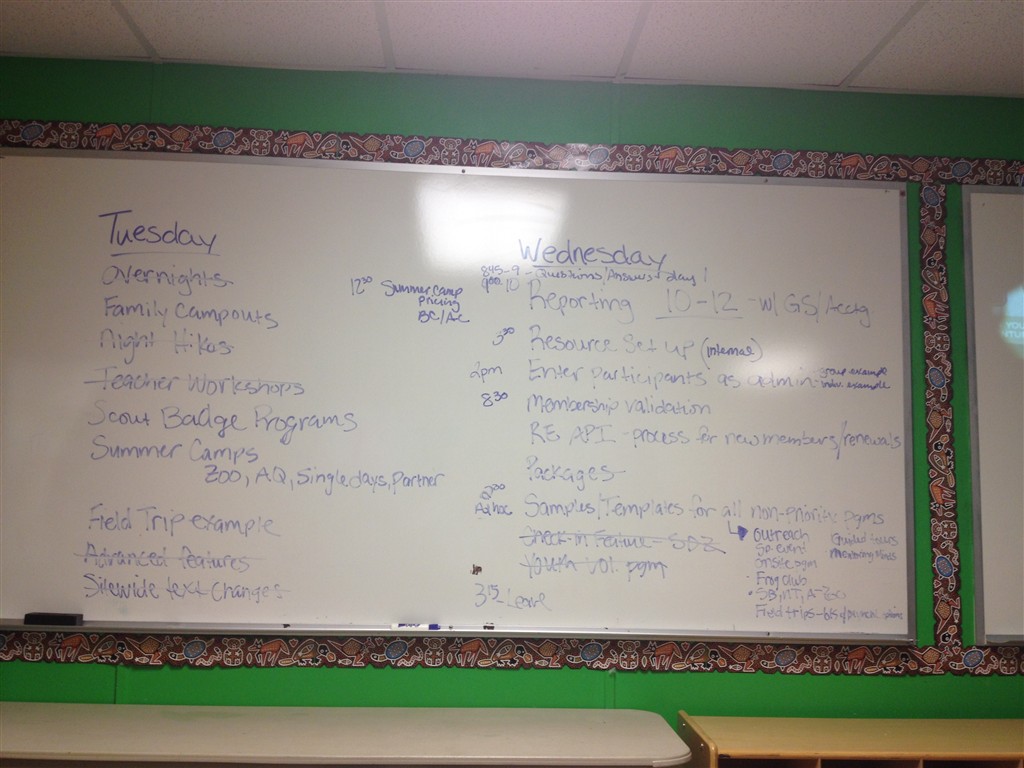 Tuesday
Overnights
Family Campouts
Night Hikes
Teacher Workshops
Scout Badge Programs
Summer Camps
ZOO, AQ, Single days, Partner
Field Trip example
Advanced features
Sitewide text changes
12:30 Summer Camp
pricing
BC/AC
Wednesday
845-9 - Questions/Answers day 1
900-10 Reporting 10-12 - w/ GS/Acctg
3:30 Resource Set up (internal)
2pm Enter participants as admin group example
indiv. example
830 Membership validation
RE API - process for new members/renewals
Packages
200
Adhoc Samples/Templates for all non-priority pgms
Check-in Feature - SDZ
Youth Vol. pgm
3:15 - Leave
Outreach
Sp. event
Onsite pgm
Frog Club
Field trips
Guided tours